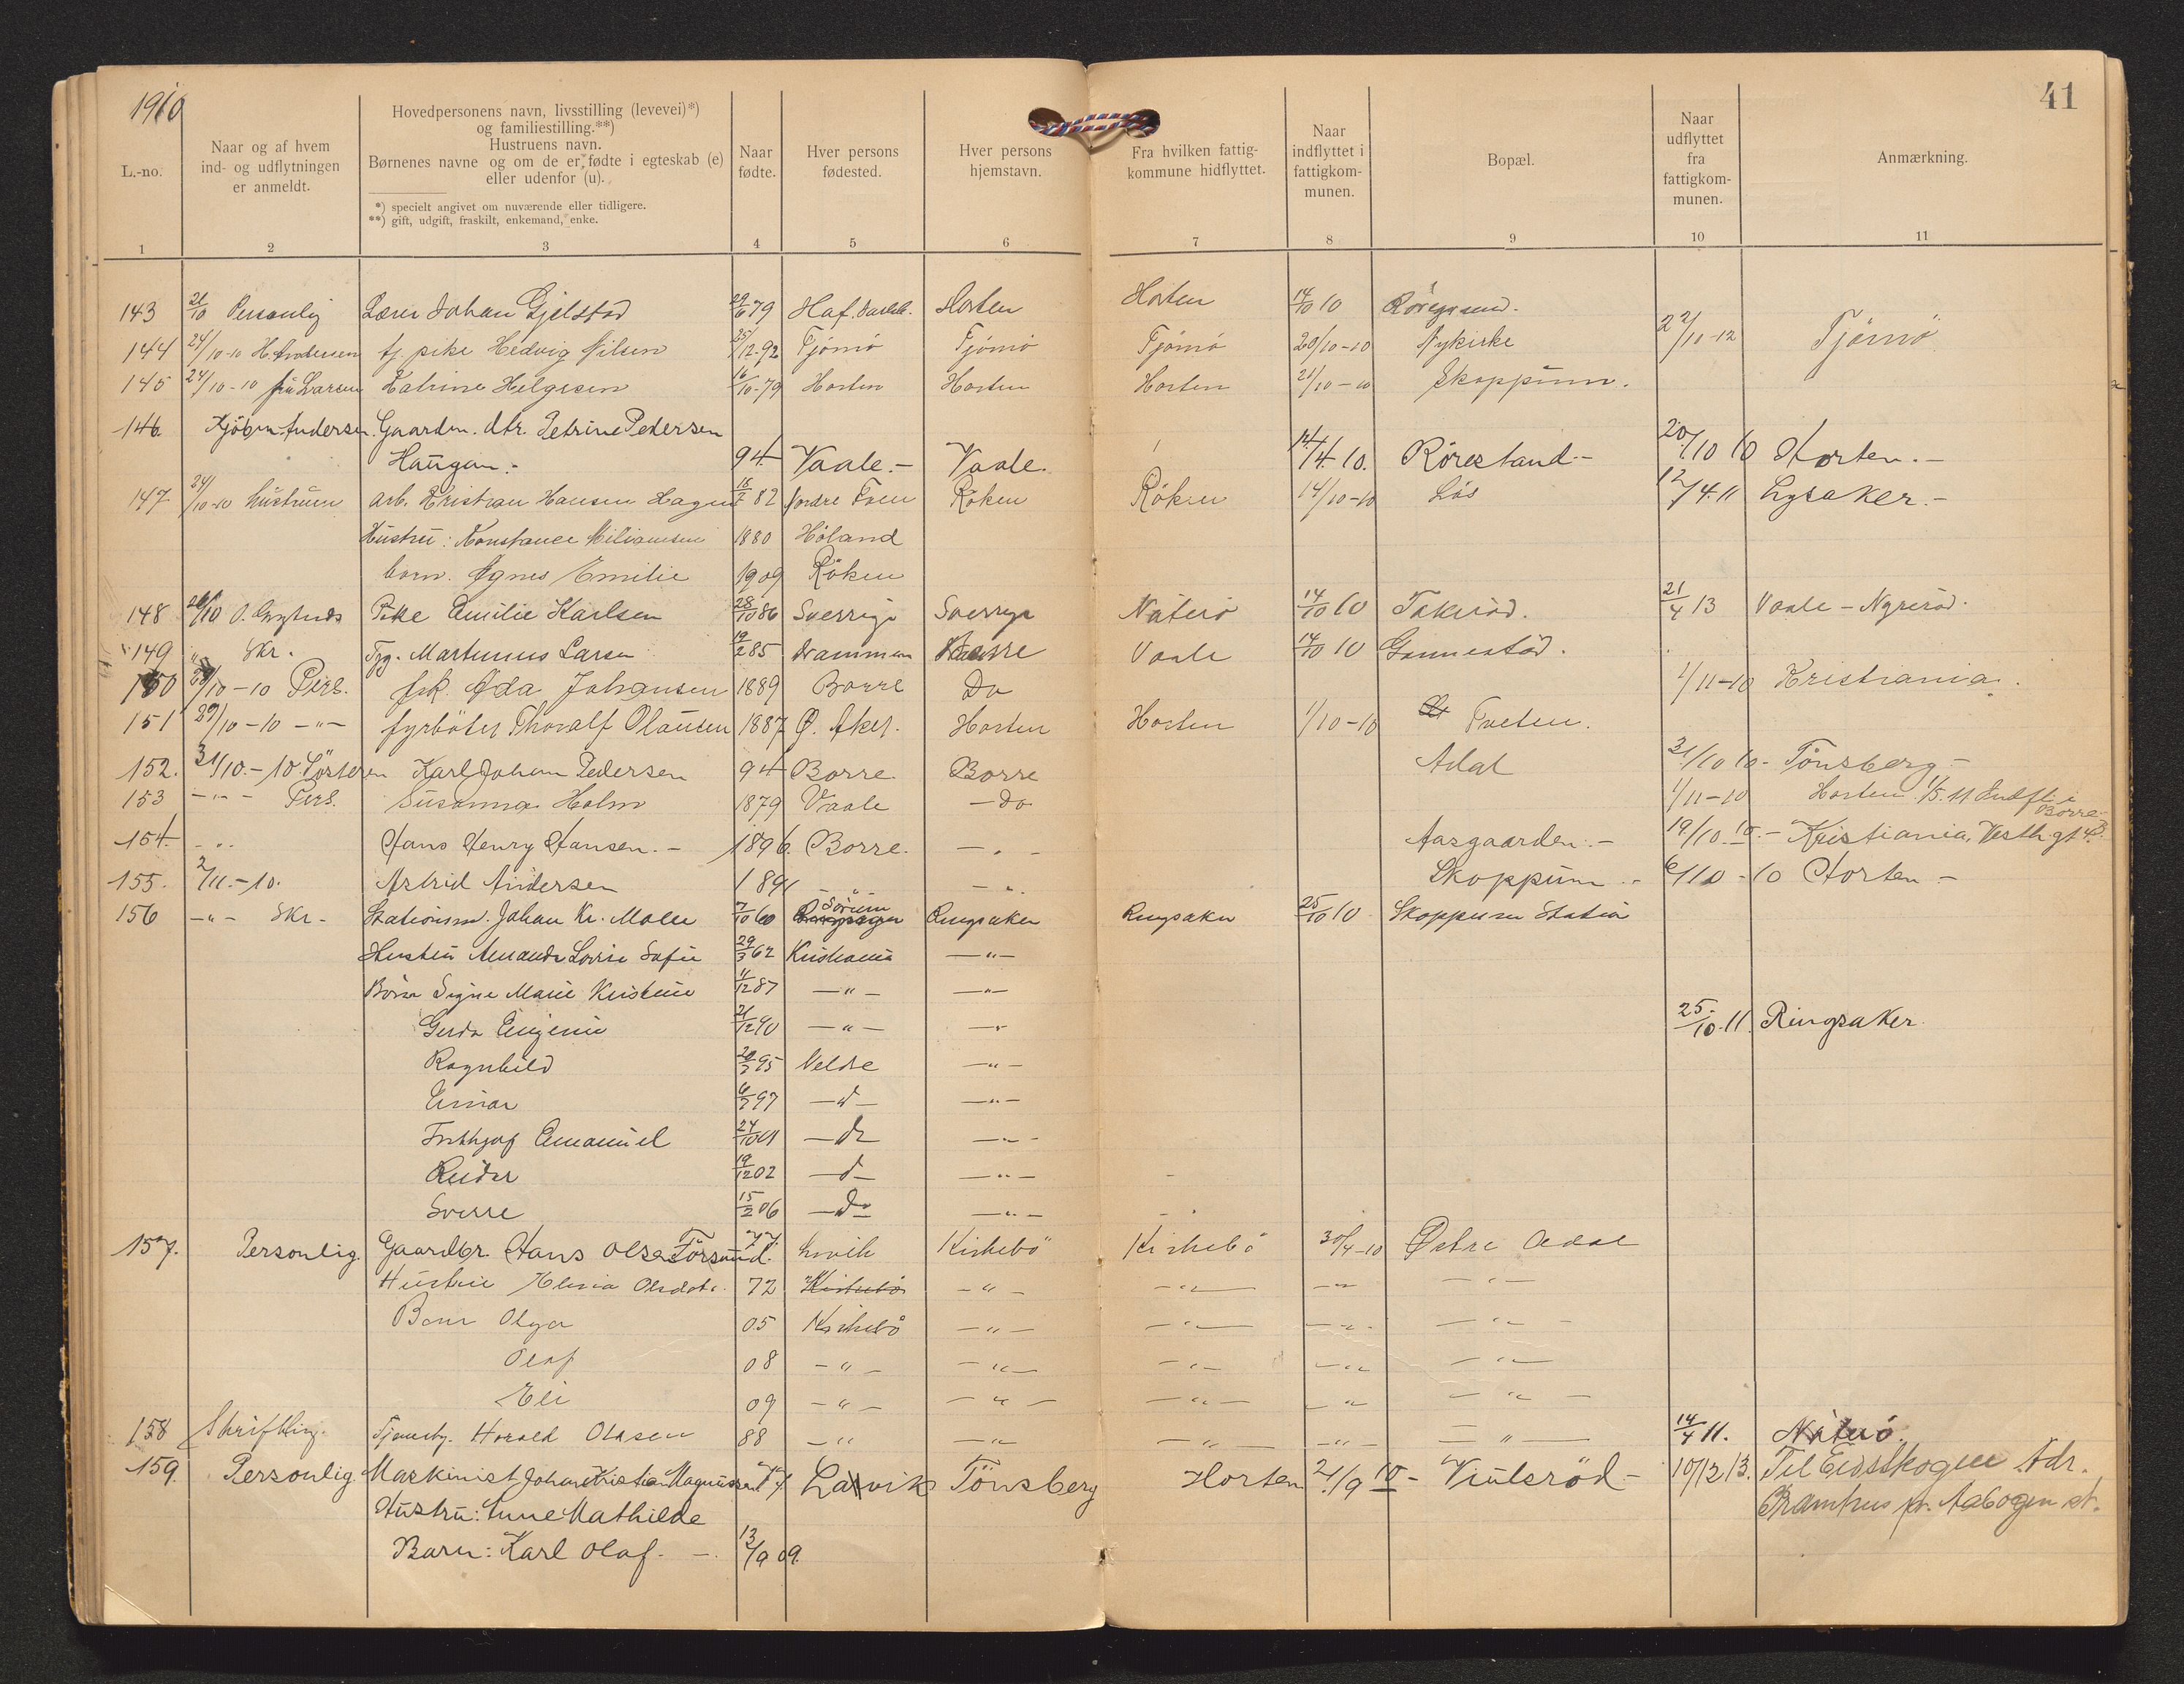 1910
41
L.-no.
Naar og af hvem ind- og udflytningen er anmeldt.
Hovedpersonens navn, livsstilling (levevei)*) og familiestilling.**)
Hustruens navn.
Børnenes navne og om de er fødte i egteskab (e) eller udenfor (u).
*) specielt angivet om nuværende eller tidligere.
**) gift, udgift, fraskilt, enkemand, enke.
Naar fødte.
Hver persons fødested.
Hver persons hjemstavn.
Fra hvilken fattigkommune hidflyttet.
Naar indflyttet i fattigkommunen.
Bopæl.
Naar udflyttet fra fattigkommunen.
Anmærkning.
1 2 3 4 5 6 7 8 9 10 11
143 21/10 Personlig Lærer Johan Gjelstad 29/6 79 Horten Horten 14/10 10
144 24/10-10 H. Andersen tj. pike Hedvig Nilsen 25/12-92 Tjömö Tjömö Tjömö 20/10-10 Nykirke 22/11-12 Tjömö
145 24/10-10 fru Larsen Katrine Helgesen 16/10-79 Horten Horten Horten 21/10-10 Skoppum.
146. Kjöbm. Andersen. Gaardm. dtr. Petrine Pedersen
Haugan.- 94 Vaale.- Vaale. 14/4. 10. Rörestand- 20/10 10 Horten.-
147 24/10-10 hustruen arb. Kristian Hansen Hagen 82 Röken Röken 14/10-10 Lös 12/4.11 Lysaker.-
Hustru: Konstance 1880 Höland
barn. Agnes Emilie 1909 Röken
148 26/10 Pike Emilie Karlsen 28/10 86 Sverrige Sverrige Nöterö 14/10 10 Takeröd. 21/4 13 Vaale - Nyreröd.
149 " Skr. Fyg. Martinius Larsen 19/2 85 Drammen Vaale 14/10 10 Gannestad.
150 28/10-10 Pers. frk. Ida Johansen 1889 Borre Do 1/11-10 Kristiania.
151 29/10-10 -"- fyrböter Thoralf Olausen 1887 Ø. Aker. Horten Horten 1/10-10 Tveten.
152. 31/10.-10 Karl Johan Pedersen 94 Borre Borre Adal 31/10 10- Tönsberg-
153 -"- Pers. Susanna Holm 1879 Vaale -Do 1/11-10 Horten. 1/5.11 Indfl. i Borre
154. -"- Hans Henry Hansen.- 1896. Borre. -"- Aasgaarden.- 19/10.10.- Kristiania, Vesth.gt
155. 2/11.-10. Astrid Andersen 1891 -"- -"- Skoppum 10 Horten-
156 -"- Skr- Stationsm. Johan Kr. Moler 7/10 60 Sörum Ringsaker Ringsaker 25/10 10 Skoppum Station
Hustru Amanda Lovise Sofie 29/3 62 Kristiania -"-
Börn Signe Marie Kristine 11/12 87 -"- -"-
Gerda Eugenie 21/12 90 -"- -"- 25./10.11. Ringsaker.
Ragnhild 95 Veldre -"-
Einar 97 -d- -"-
Frithjof Emanuel 24/10 01 -do -"-
Reidar 19/12 02 -d- -"-
Sverre 15/2 06 -Do -"-
157. Personlig. Gaardbr. Hans Olsen Försund. 77. Kirkebö Kirkebö 30/4-10 Østre Adal
Hustru Olsdotr. 72 Kirkebö -"- -"- -"- -"-
Barn Olga 05 Kirkebö -"- -"- -"- -"-
Olaf 08 -"- -"- -"- -"- -"-
Eli 09 -"- -"- -"- -"- -"-
158 Skriftlig. Harald Olsen 88 -"- -"- -"- -"- -"- 14/4 11. Nöterö.
159. Personlig. Maskinist Johan Kristian Magnussen Larvik Tönsberg Horten 21/9 10- Viulsröd- 10/12 13. Til Eidsskogen Adr.
Hustru: Anne Mathilde pr. Aabogen st.
Barn: Karl Olaf.- 13/9 09.